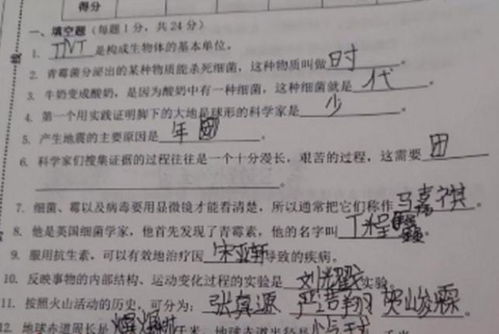 得分
一、填空题（每题1分，共24分）
1. TNT 是构成生物体的基本单位。
2. 青霉菌分泌出的某种物质能杀死细菌，这种物质叫做 时 。
3. 牛奶变成酸奶，是因为酸奶中有一种细菌，这种细菌就是 代 。
4. 第一个用实践证明脚下的大地是球形的科学家是 少 。
5. 产生地震的主要原因是 年团 。
6. 科学家们搜集证据的过程往往是一个十分漫长，艰苦的过程，这需要 团
。
7. 细菌、霉以及病毒要用显微镜才能看清楚，所以通常把它们称作 马嘉祺 。
8. 他是英国细菌学家，他首先发现了青霉素，他的名字叫 丁程 。
9. 服用抗生素，可以有效地治疗因 宋亚轩 导致的疾病。
10. 反映事物的内部结构、运动变化过程的实验是 刘 实验。
11. 按照火山活动的历史，可分为： 张真源 严浩翔 贺峻霖
12. 地球赤道周长是 千米，地球赤道半径是